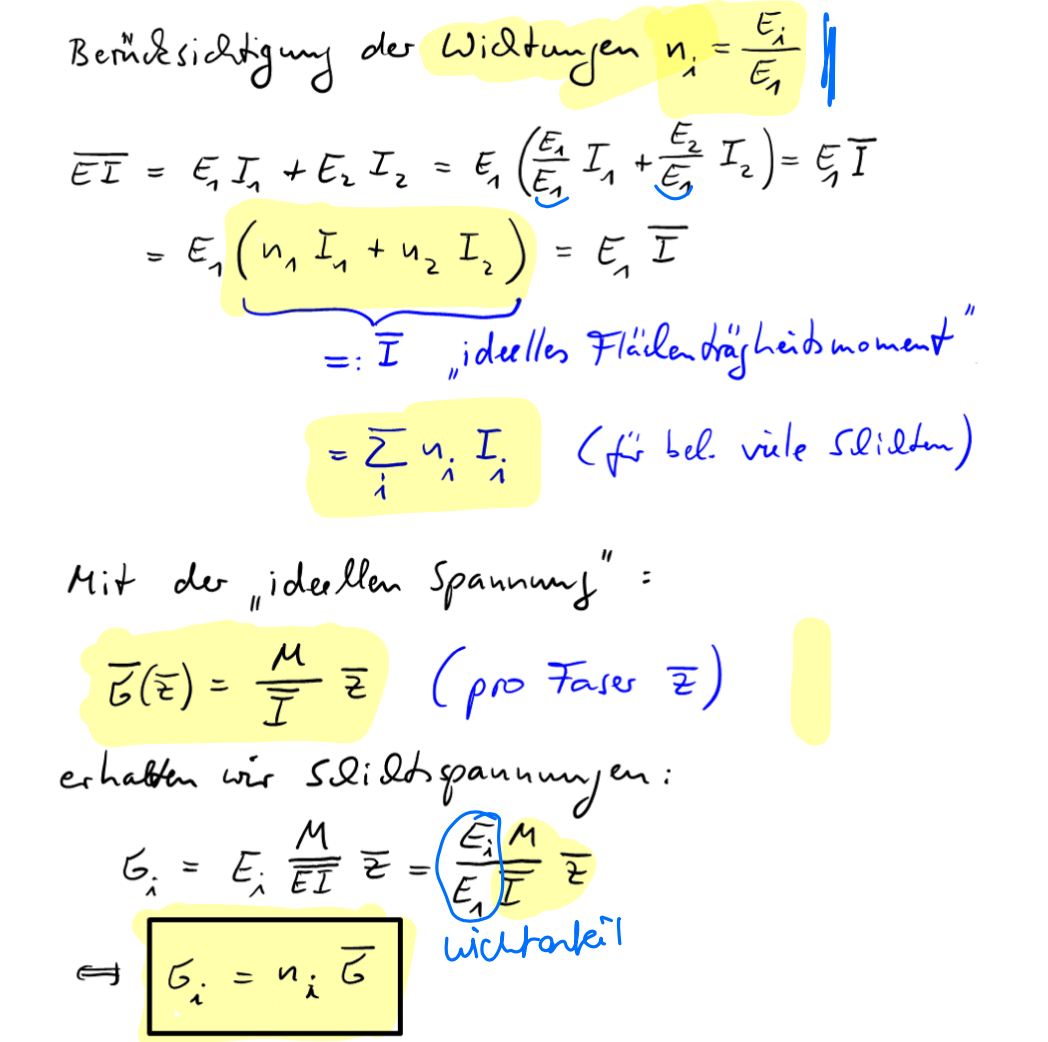 Berücksichtigung der Wichtungen n_i = E_i/E_1
\overline{EI} = E_1 I_1 + E_2 I_2 = E_1 (E_1/E_1 I_1 + E_2/E_1 I_2) = E_1 \overline{I}
= E_1 (n_1 I_1 + n_2 I_2) = E_1 \overline{I}
=: \overline{I} „ideelles Flächenträgheitsmoment"
= Σ_i n_i I_i (für bel. viele Schichten)
Mit der „ideellen Spannung" :
\overline{σ}(\overline{z}) = M/\overline{I} \overline{z} (pro Faser \overline{z})
erhalten wir Schichtspannungen:
σ_i = E_i M/\overline{EI} \overline{z} = E_i/E_1 M/\overline{I} \overline{z}
Wichtanteil
⇔ σ_i = n_i \overline{σ}